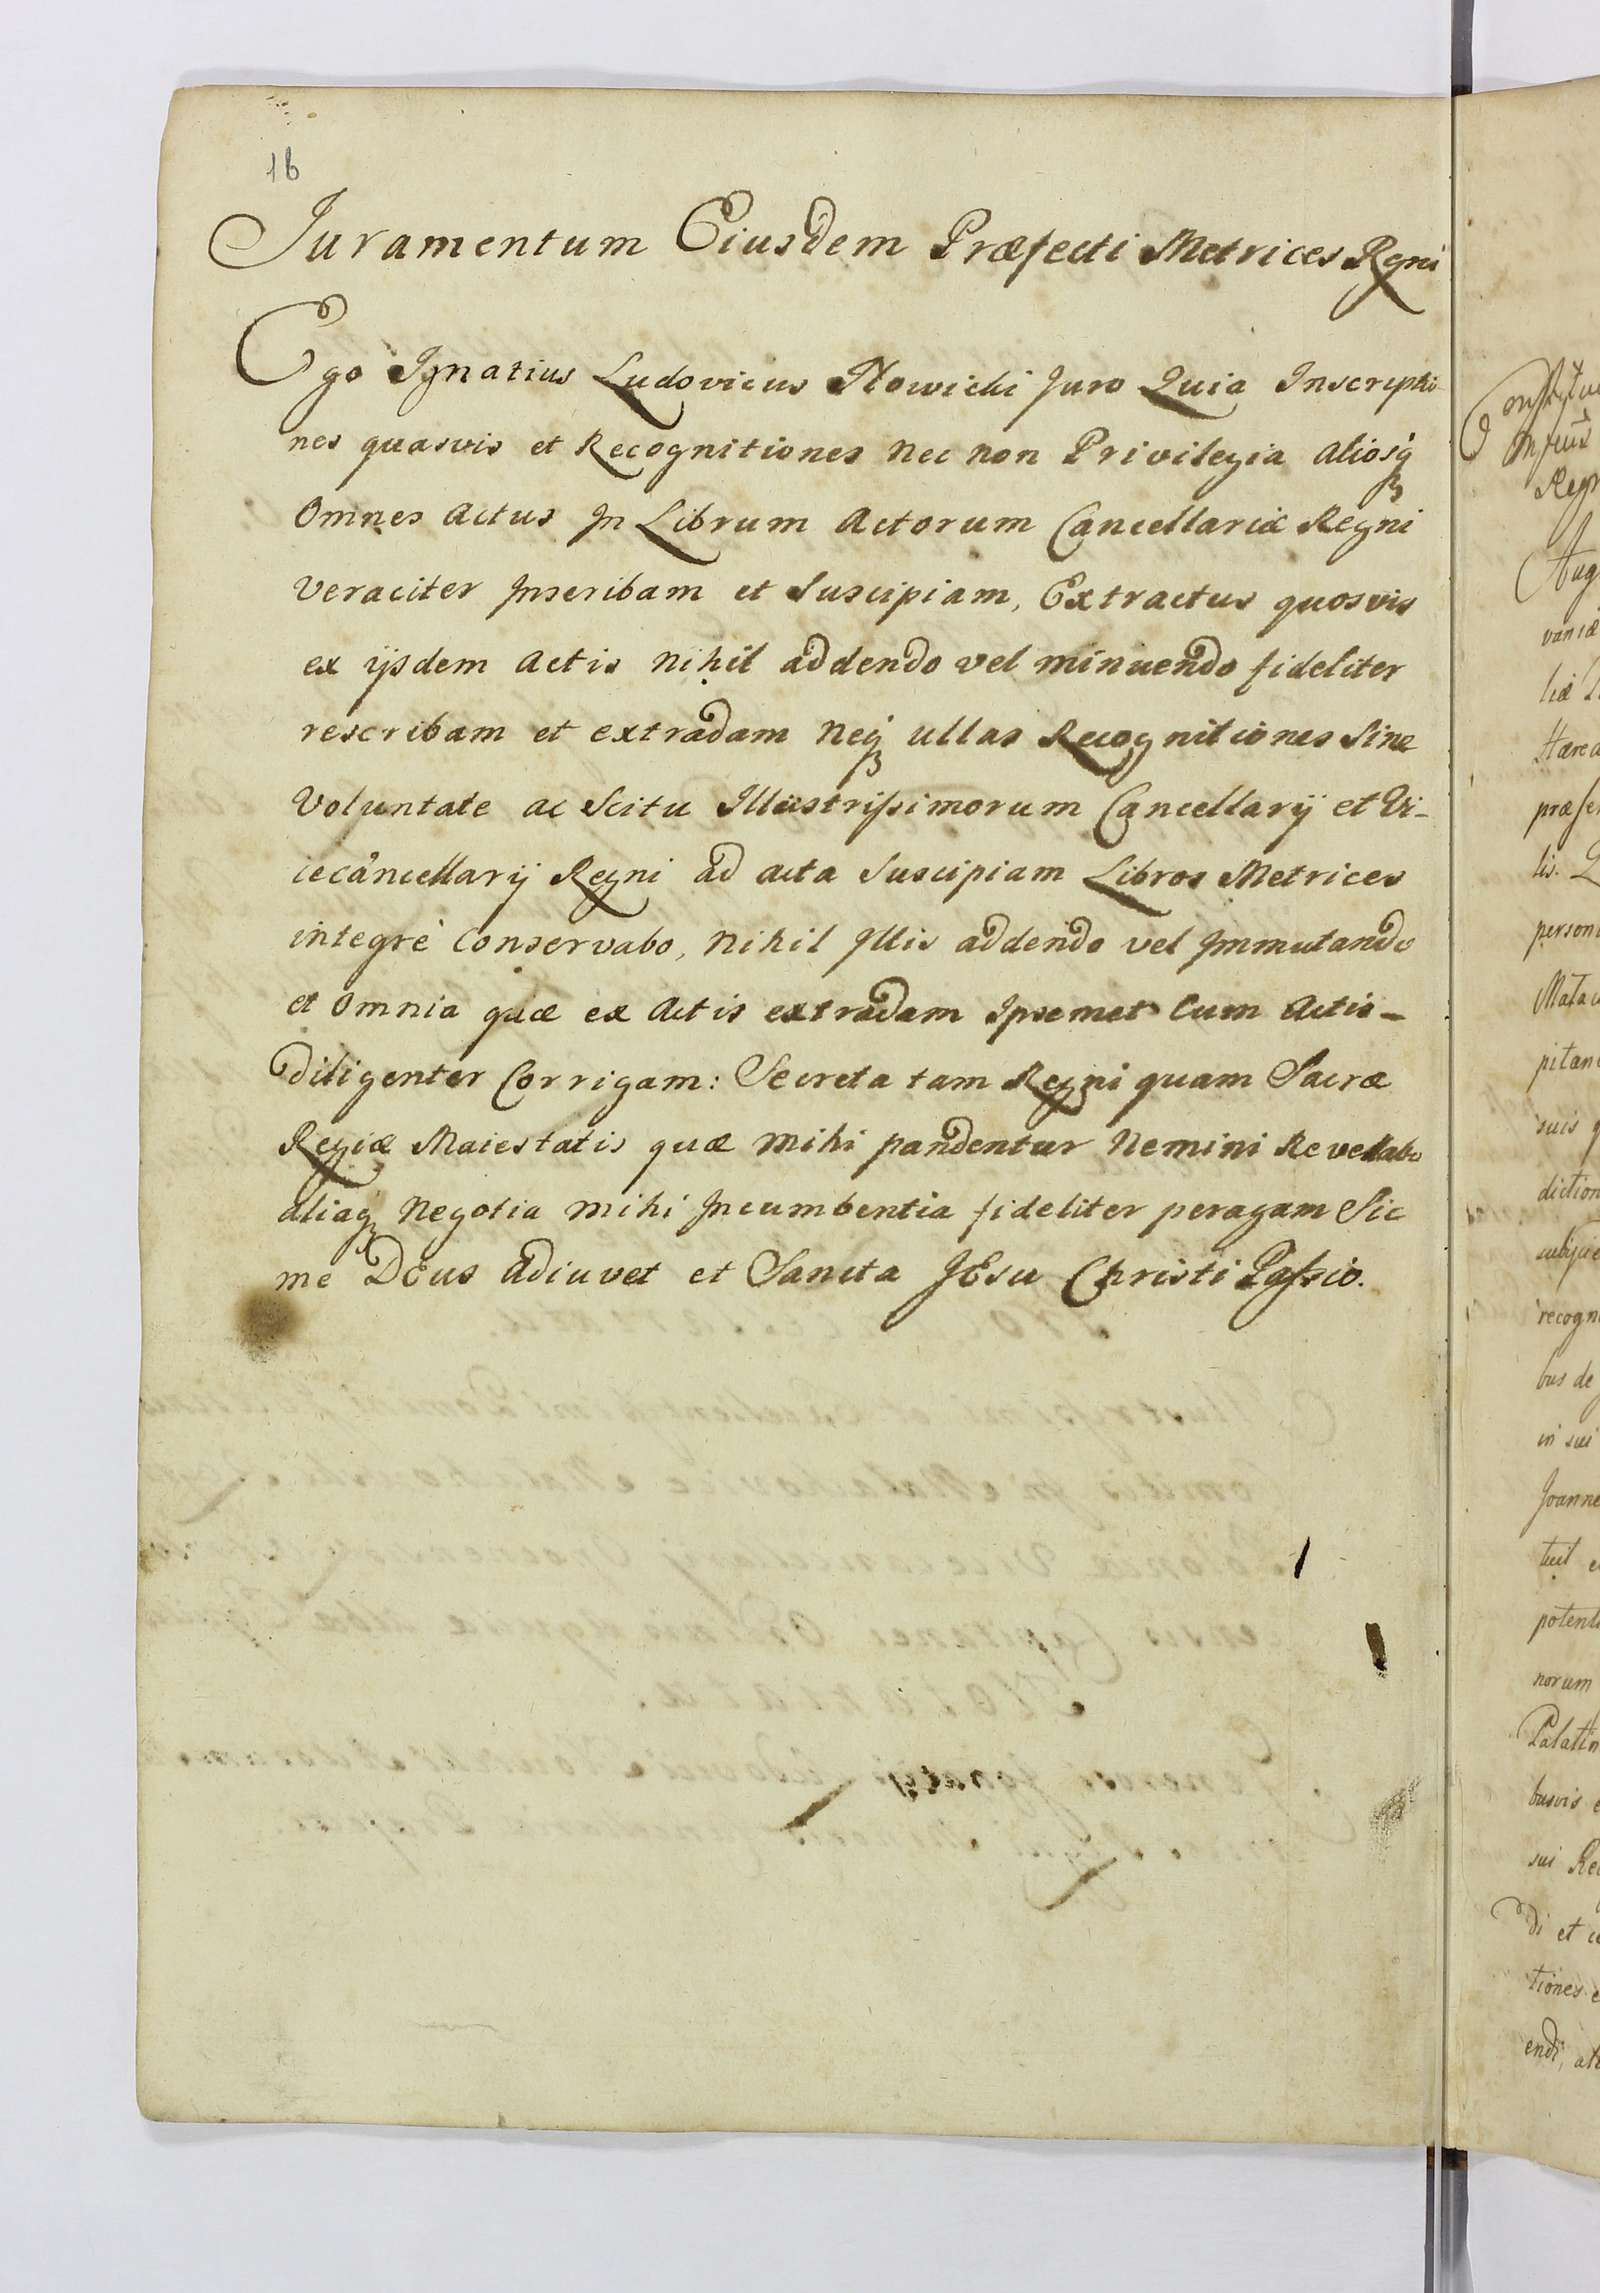 16
Juramentum Eiusdem Præfecti Metrices Regni
Ego Ignatius Ludovicus Nowicki Juro Quia Inscriptio
nes quasvis et Recognitiones nec non Privilegia aliosq
Omnes actus In Librum Actorum Cancellariæ Regni
veraciter Inseribam et Suscipiam, Extractus quosvis
ex ijsdem actis nihil addendo vel minuendo fideliter
rescribam et extradam neq ullas Recognitiones Sine
Voluntate ac Scitu Illustrissimorum Cancellarij et Vi-
cecancellarij Regni ad acta Suscipiam Libros Metrices
integrè conservabo, nihil Illis addendo vel Immutando
et omnia quæ ex Actis extradam Ipsemet Cum Actis-
diligenter Corrigam: Secreta tam Regni quam Sacræ
Regiæ Maiestatis quæ mihi pandentur Nemini Revellabo
aliaq Negotia mihi Incumbentia fideliter peragam Sic
me DEus adiuvet et Sancta JEsu Christi Passio.
Aug
væniæ
præser
lis.
person
pitan
suis
diction
recogn
bus de
in sui
Joanne
potent
norum
Palatin
busvis
sui Re
di et
tiones
endi,